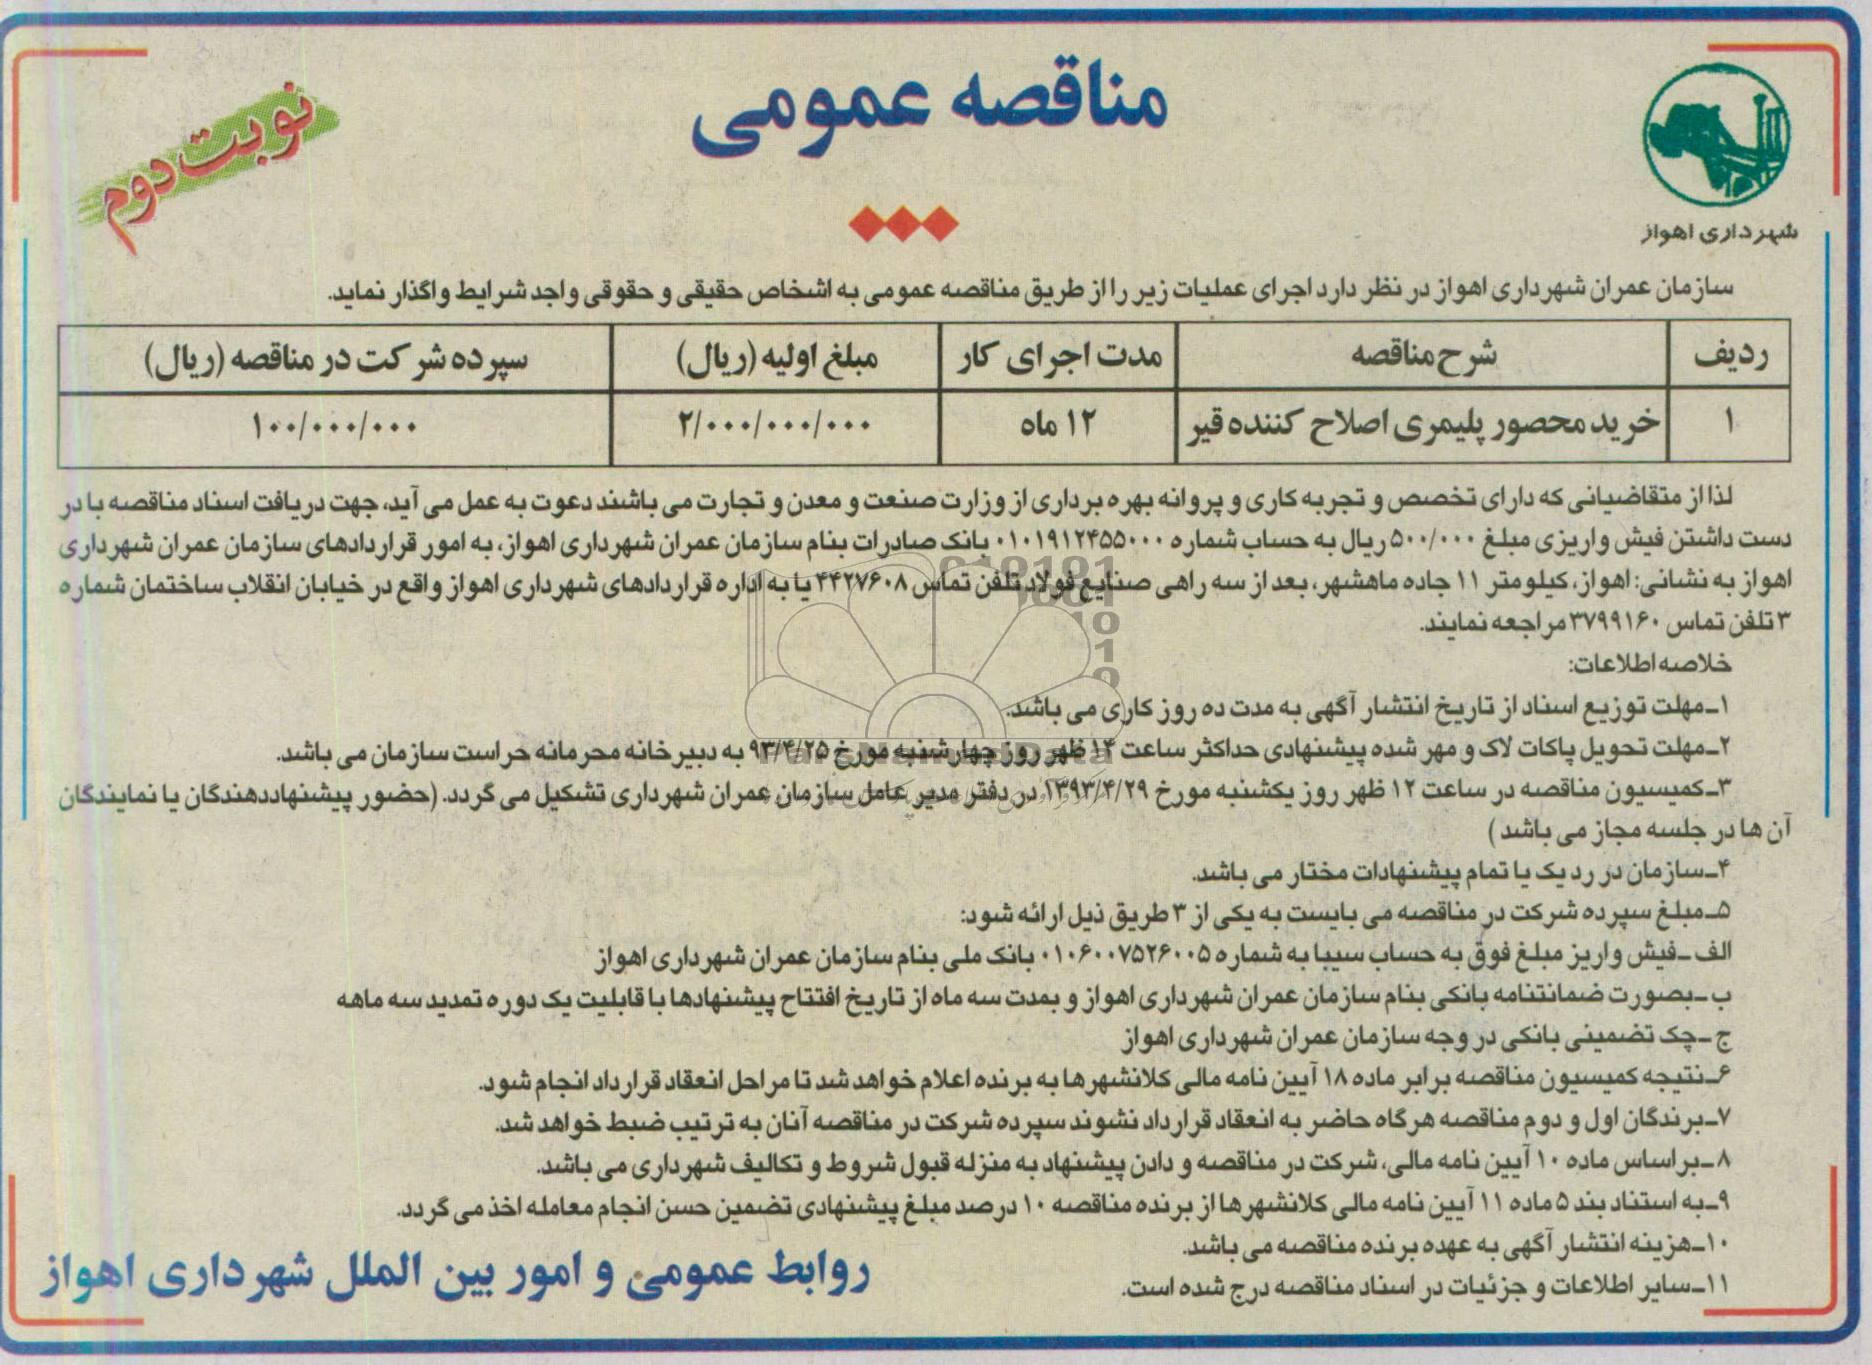 مناقصه عمومی
نوبت دوم
شهرداری اهواز
سازمان عمران شهرداری اهواز در نظر دارد اجرای عملیات زیر را از طریق مناقصه عمومی به اشخاص حقیقی و حقوقی واجد شرایط واگذار نماید.
ردیف شرح مناقصه مدت اجرای کار مبلغ اولیه (ریال) سپرده شرکت در مناقصه (ریال)
۱ خرید محصور پلیمری اصلاح کننده قیر ۱۲ ماه ۲/۰۰۰/۰۰۰/۰۰۰ ۱۰۰/۰۰۰/۰۰۰
لذا از متقاضیانی که دارای تخصص و تجربه کاری و پروانه بهره برداری از وزارت صنعت و معدن و تجارت می باشند دعوت به عمل می آید، جهت دریافت اسناد مناقصه با در
دست داشتن فیش واریزی مبلغ ۵۰۰/۰۰۰ ریال به حساب شماره ۰۱۰۱۹۱۲۴۵۵۰۰۰ بانک صادرات بنام سازمان عمران شهرداری اهواز، به امور قراردادهای سازمان عمران شهرداری
اهواز به نشانی: اهواز، کیلومتر ۱۱ جاده ماهشهر، بعد از سه راهی صنایع فولاد تلفن تماس ۴۴۲۷۶۰۸ یا به اداره قراردادهای شهرداری اهواز واقع در خیابان انقلاب ساختمان شماره
۳ تلفن تماس ۳۷۹۹۱۶۰ مراجعه نمایند.
خلاصه اطلاعات:
۱ـ مهلت توزیع اسناد از تاریخ انتشار آگهی به مدت ده روز کاری می باشد.
۲ـ مهلت تحویل پاکات لاک و مهر شده پیشنهادی حداکثر ساعت ۱۴ ظهر روز چهارشنبه مورخ ۹۳/۴/۲۵ به دبیرخانه محرمانه حراست سازمان می باشد.
۳ـ کمیسیون مناقصه در ساعت ۱۲ ظهر روز یکشنبه مورخ ۱۳۹۳/۴/۲۹ در دفتر مدیر عامل سازمان عمران شهرداری تشکیل می گردد. (حضور پیشنهاددهندگان یا نمایندگان
آن ها در جلسه مجاز می باشد)
۴ـ سازمان در رد یک یا تمام پیشنهادات مختار می باشد.
۵ـ مبلغ سپرده شرکت در مناقصه می بایست به یکی از ۳ طریق ذیل ارائه شود:
الف ـ فیش واریز مبلغ فوق به حساب سیبا به شماره ۰۱۰۶۰۰۷۵۲۶۰۰۵ بانک ملی بنام سازمان عمران شهرداری اهواز
ب ـ بصورت ضمانتنامه بانکی بنام سازمان عمران شهرداری اهواز و بمدت سه ماه از تاریخ افتتاح پیشنهادها با قابلیت یک دوره تمدید سه ماهه
ج ـ چک تضمینی بانکی در وجه سازمان عمران شهرداری اهواز
۶ـ نتیجه کمیسیون مناقصه برابر ماده ۱۸ آیین نامه مالی کلانشهرها به برنده اعلام خواهد شد تا مراحل انعقاد قرارداد انجام شود.
۷ـ برندگان اول و دوم مناقصه هرگاه حاضر به انعقاد قرارداد نشوند سپرده شرکت در مناقصه آنان به ترتیب ضبط خواهد شد.
۸ ـ براساس ماده ۱۰ آیین نامه مالی، شرکت در مناقصه و دادن پیشنهاد به منزله قبول شروط و تکالیف شهرداری می باشد.
۹ـ به استناد بند ۵ ماده ۱۱ آیین نامه مالی کلانشهرها از برنده مناقصه ۱۰ درصد مبلغ پیشنهادی تضمین حسن انجام معامله اخذ می گردد.
۱۰ـ هزینه انتشار آگهی به عهده برنده مناقصه می باشد.
۱۱ـ سایر اطلاعات و جزئیات در اسناد مناقصه درج شده است.
روابط عمومی و امور بین الملل شهرداری اهواز